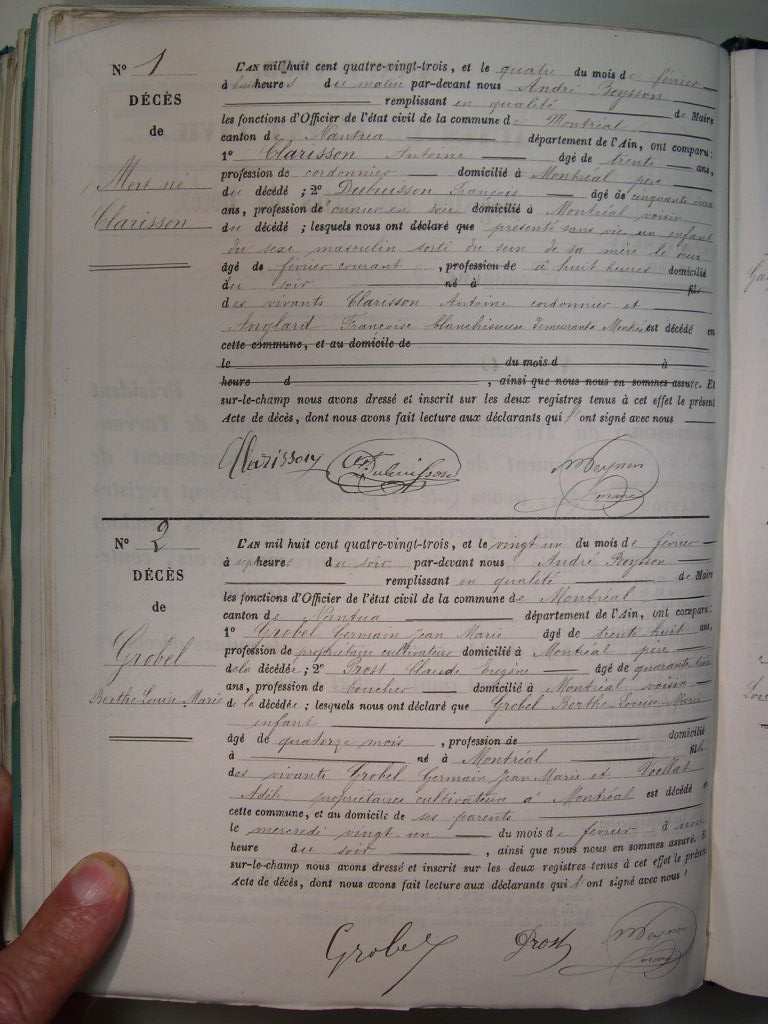 N° 1
DÉCÈS
de
Mort né
Clarisson
L'AN mil huit cent quatre-vingt-trois, et le quatre du mois de février
à huit heures du matin par-devant nous André Reysson
remplissant en qualité de Maire
les fonctions d'Officier de l'état civil de la commune de Montréal
canton de Nantua département de l'Ain, ont comparu :
1° Clarisson Antoine âgé de trente ans,
profession de cordonnier domicilié à Montréal père
du décédé ; 2° Dubuisson François âgé de cinquante
ans, profession d'ouvrier en soie domicilié à Montréal voisin
du décédé ; lesquels nous ont déclaré que présenté sans vie un enfant
du sexe masculin sorti du sein de sa mère le
âgé de février courant, profession de à huit heures domicilié
du soir né à fils
des vivants Clarisson Antoine cordonnier et
Anglard Françoise blanchisseuse demeurants est décédé en
cette commune, et au domicile de
le du mois d à
heure d , ainsi que nous nous en sommes assuré. Et
sur-le-champ nous avons dressé et inscrit sur les deux registres tenus à cet effet le présent
Acte de décès, dont nous avons fait lecture aux déclarants qui ont signé avec nous
Clarisson Dubuisson
N° 2
DÉCÈS
de
Grobel
Berthe Louise Marie
L'AN mil huit cent quatre-vingt-trois, et le vingt un du mois de février
à sept heures du soir par-devant nous André Reysson
remplissant en qualité de Maire
les fonctions d'Officier de l'état civil de la commune de Montréal
canton de Nantua département de l'Ain, ont comparu :
1° Grobel Germain Jean Marie âgé de trente huit ans,
profession de propriétaire cultivateur domicilié à Montréal père
de la décédée ; 2° Prost Claude Eugène âgé de quarante
ans, profession de boucher domicilié à Montréal voisin
de la décédée ; lesquels nous ont déclaré que Grobel Berthe Louise Marie
enfant
âgé de quatorze mois, profession de domicilié
à né à Montréal fille
des vivants Grobel Germain Jean Marie et
Adèle propriétaires cultivateurs à Montréal est décédé e
cette commune, et au domicile de ses parents
le mercredi vingt un du mois de février à
heure du soir, ainsi que nous nous en sommes assuré. E
sur-le-champ nous avons dressé et inscrit sur les deux registres tenus à cet effet le présen
Acte de décès, dont nous avons fait lecture aux déclarants qui ont signé avec nous !
Grobel Prost